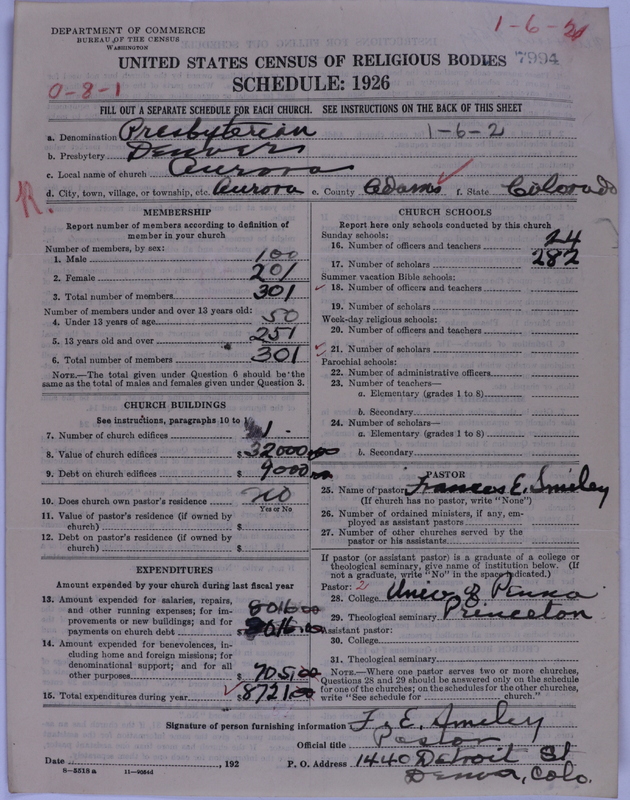 DEPARTMENT OF COMMERCE
BUREAU OF THE CENSUS
WASHINGTON
1-6-2
UNITED STATES CENSUS OF RELIGIOUS BODIES 7994
SCHEDULE: 1926
0-8-1
FILL OUT A SEPARATE SCHEDULE FOR EACH CHURCH. SEE INSTRUCTIONS ON THE BACK OF THIS SHEET
a. Denomination Presbyterian 1-6-2
b. Presbytery Denver
c. Local name of church Aurora
d. City, town, village, or township, etc. Aurora e. County Adams f. State Colorado
R.
MEMBERSHIP
Report number of members according to definition of
member in your church
Number of members, by sex:
1. Male 100
2. Female 201
3. Total number of members 301
Number of members under and over 13 years old:
4. Under 13 years of age 50
5. 13 years old and over 251
6. Total number of members 301
NOTE.—The total given under Question 6 should be the
same as the total of males and females given under Question 3.
CHURCH BUILDINGS
See instructions, paragraphs 10 to
7. Number of church edifices 1
8. Value of church edifices $32000.00
9. Debt on church edifices $9000.00
10. Does church own pastor's residence no
Yes or No
11. Value of pastor's residence (if owned by
church) $
12. Debt on pastor's residence (if owned by
church) $
EXPENDITURES
Amount expended by your church during last fiscal year
13. Amount expended for salaries, repairs,
and other running expenses; for im-
provements or new buildings; and for
payments on church debt 8016.00
14. Amount expended for benevolences, in-
cluding home and foreign missions; for
denominational support; and for all
other purposes $705.00
15. Total expenditures during year $8721.00
CHURCH SCHOOLS
Report here only schools conducted by this church
Sunday schools:
16. Number of officers and teachers 24
17. Number of scholars 282
Summer vacation Bible schools:
18. Number of officers and teachers
19. Number of scholars
Week-day religious schools:
20. Number of officers and teachers
21. Number of scholars
Parochial schools:
22. Number of administrative officers
23. Number of teachers—
a. Elementary (grades 1 to 8)
b. Secondary
24. Number of scholars—
a. Elementary (grades 1 to 8)
b. Secondary
PASTOR
25. Name of pastor Frances E. Smiley
(If church has no pastor, write "None")
26. Number of ordained ministers, if any, em-
ployed as assistant pastors
27. Number of other churches served by the
pastor or his assistants
If pastor (or assistant pastor) is a graduate of a college or
theological seminary, give name of institution below. (If
not a graduate, write "No" in the space indicated.)
Pastor: 2
28. College Univ of Penna
29. Theological seminary Princeton
Assistant pastor:
30. College
31. Theological seminary
NOTE.—Where one pastor serves two or more churches,
Questions 28 and 29 should be answered only on the schedule
for one of the churches; on the schedules for the other churches,
write "See schedule for church."
Signature of person furnishing information F. E. Smiley
Official title Pastor
Date , 192 P. O. Address 1440 Detroit St
Denver, Colo.
8-5518 a